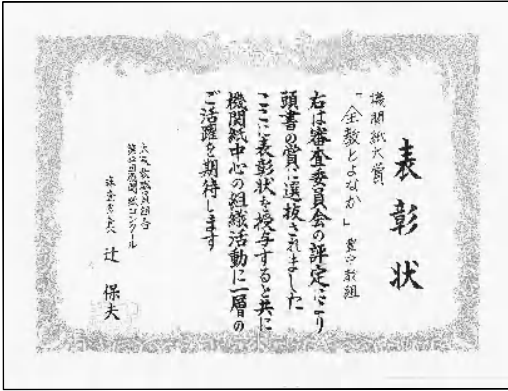 表彰状
機関紙大賞
「全教とよなか」豊中教組
右は審査委員会の評定により
頭書の賞に選抜されました
ここに表彰状を授与すると共に
機関紙中心の組織活動に一層の
ご活躍を期待します
大阪教職員組合
機関紙コンクール
審査委員長 辻 保夫